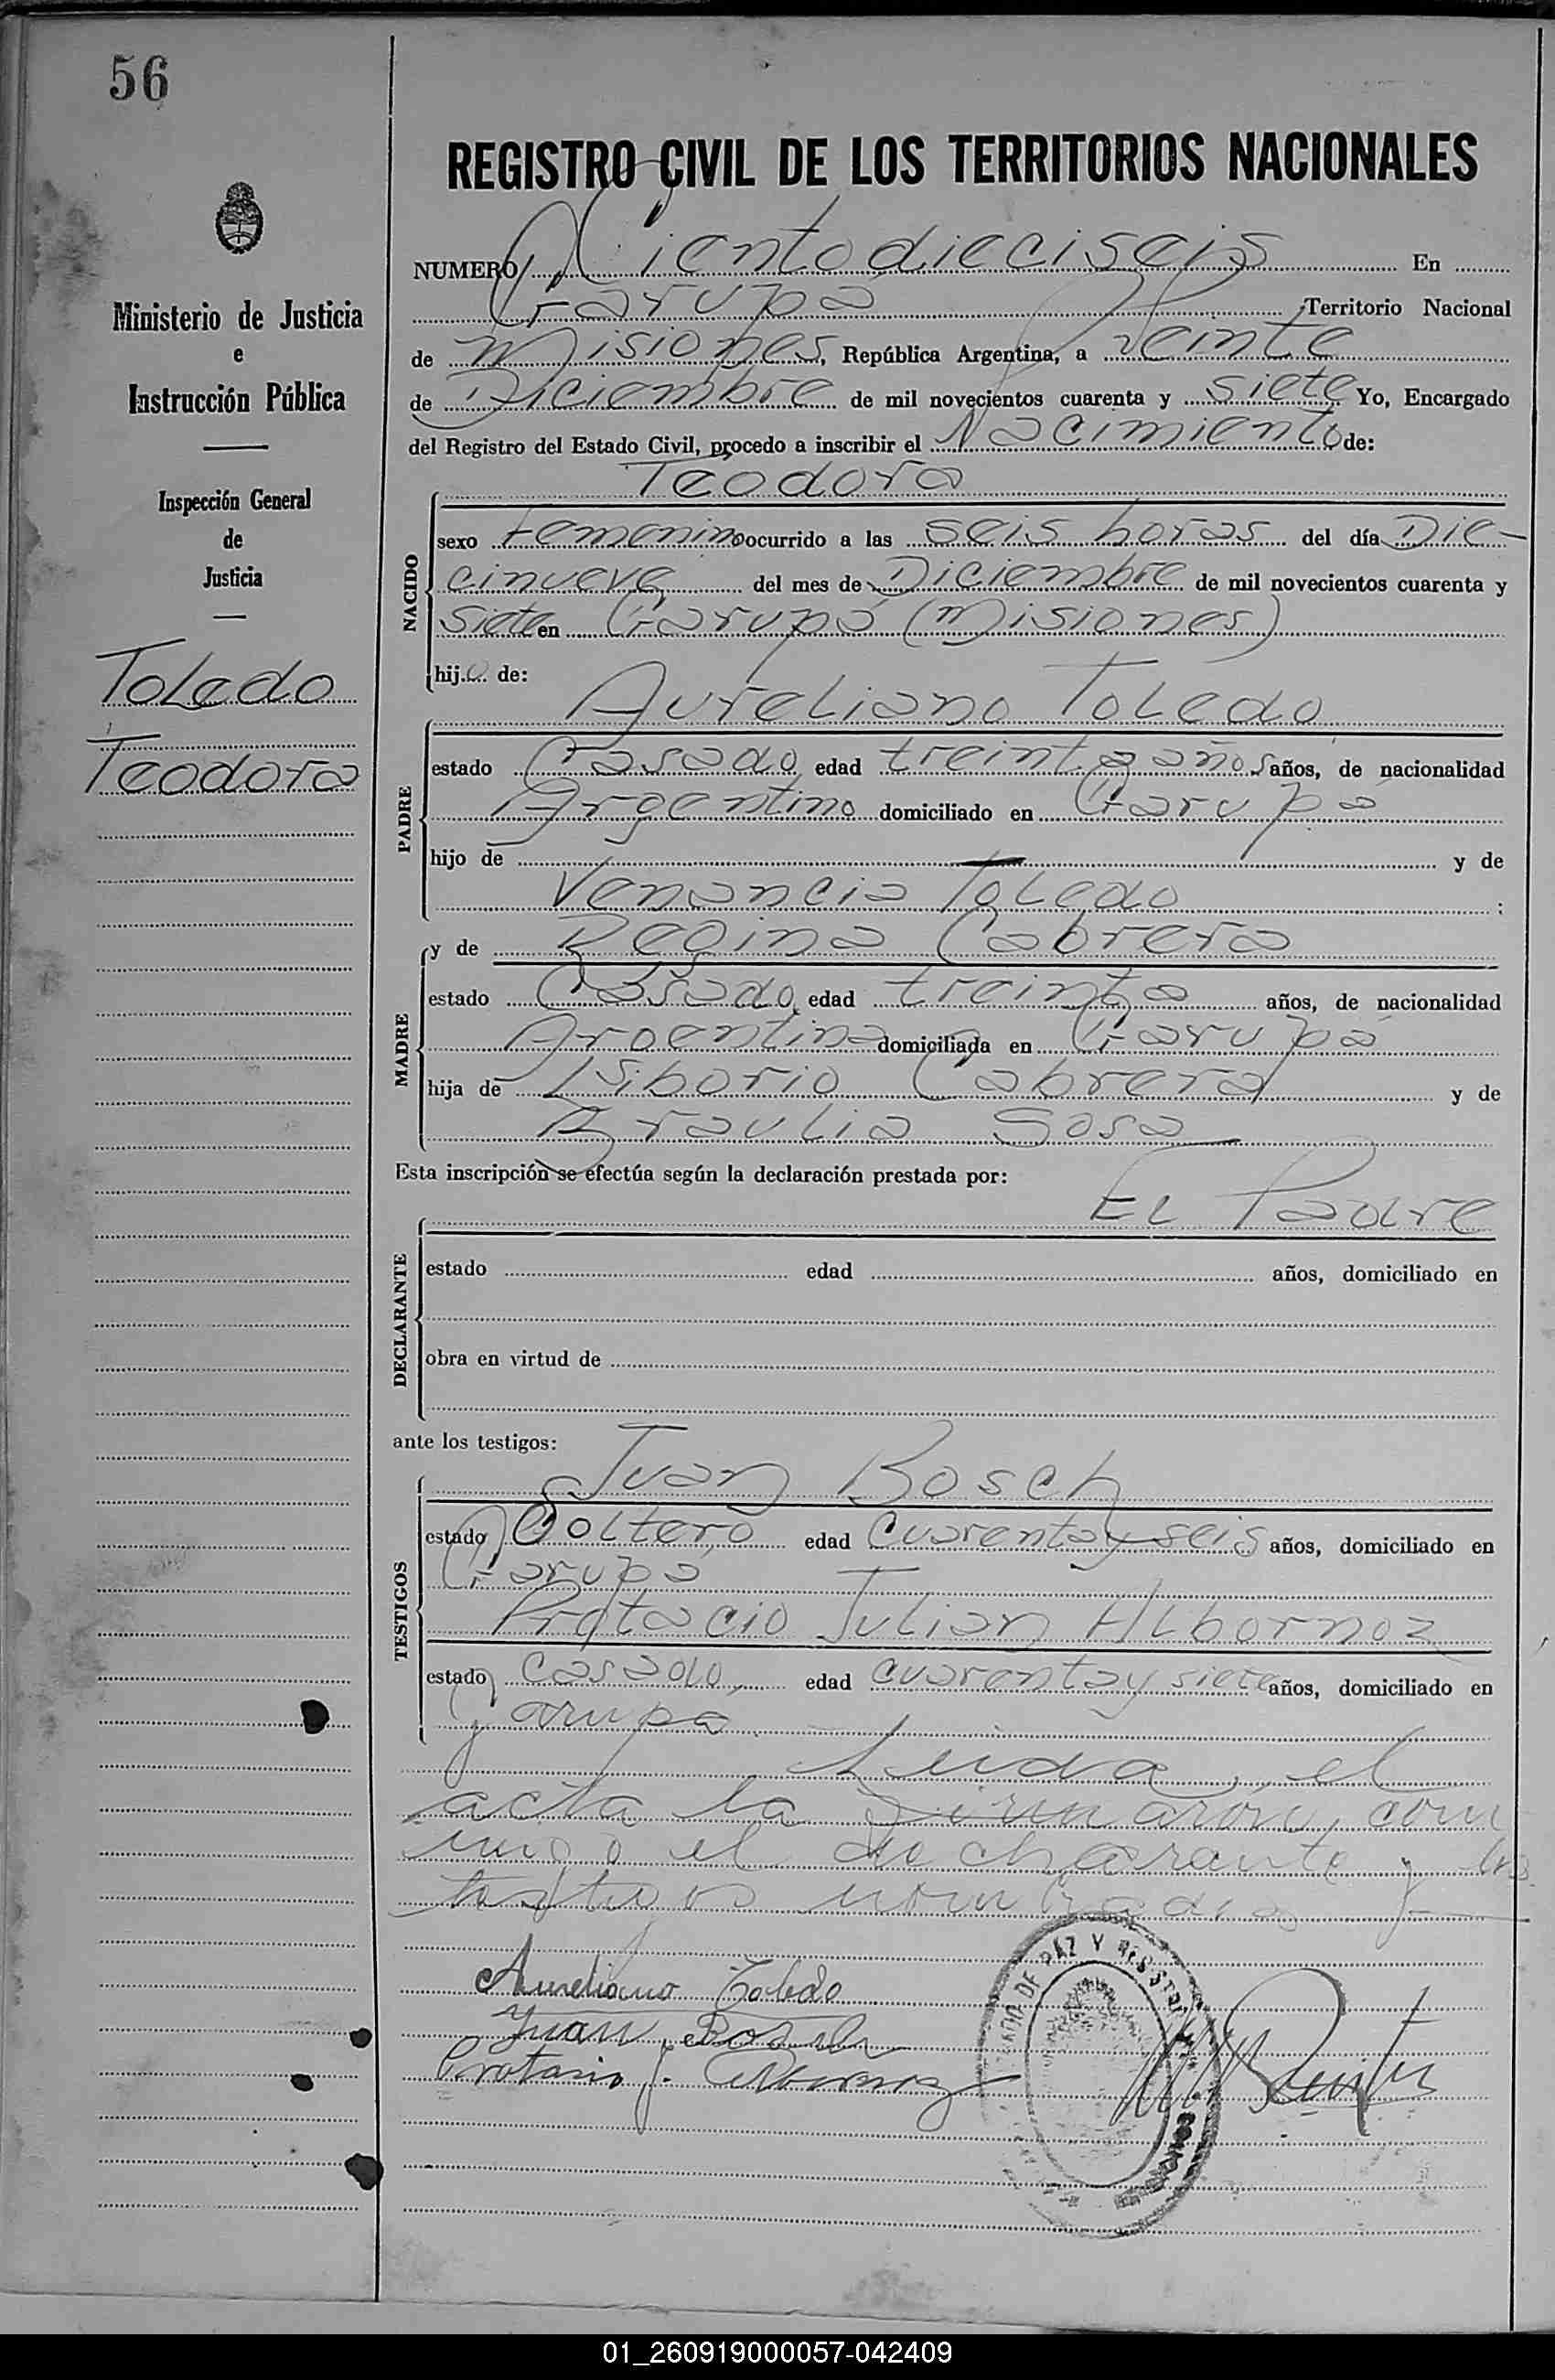 56
REGISTRO CIVIL DE LOS TERRITORIOS NACIONALES
NUMERO Ciento dieciseis En
Garupá Territorio Nacional
de Misiones, República Argentina, a veinte
de Diciembre de mil novecientos cuarenta y siete Yo, Encargado
del Registro del Estado Civil, procedo a inscribir el Nacimiento de:
Ministerio de Justicia
e
Instrucción Pública
Inspección General
de
Justicia
Toledo
Teodora
NACIDO
Teodora
sexo femenino ocurrido a las seis horas del día Die-
cinueve del mes de Diciembre de mil novecientos cuarenta y
siete en Garupá (Misiones)
hij.a. de:
PADRE
Aureliano Toledo
estado Casado edad treinta años años, de nacionalidad
Argentino domiciliado en Garupá
hijo de y de
Venancia Toledo ;
MADRE
y de Regina Cabrera
estado Casada edad treinta años, de nacionalidad
Argentina domiciliada en Garupá
hija de Liborio Cabrera y de
Braulia Sosa
Esta inscripción se efectúa según la declaración prestada por:
DECLARANTE
El Padre
estado edad años, domiciliado en
obra en virtud de
ante los testigos:
TESTIGOS
Juan Bosch
estado Soltero edad Cuarenta y seis años, domiciliado en
Garupá
Protacio Julian Albornoz
estado casado, edad cuarenta y siete años, domiciliado en
Garupa. Leida el
acta la firmaron, con
migo el declarante y los
testigos nombrados
Aureliano Toledo
Juan Bosch
Protasio J. Albornoz
JUZGADO DE PAZ Y REGISTRO
MISIONES
01_260919000057-042409